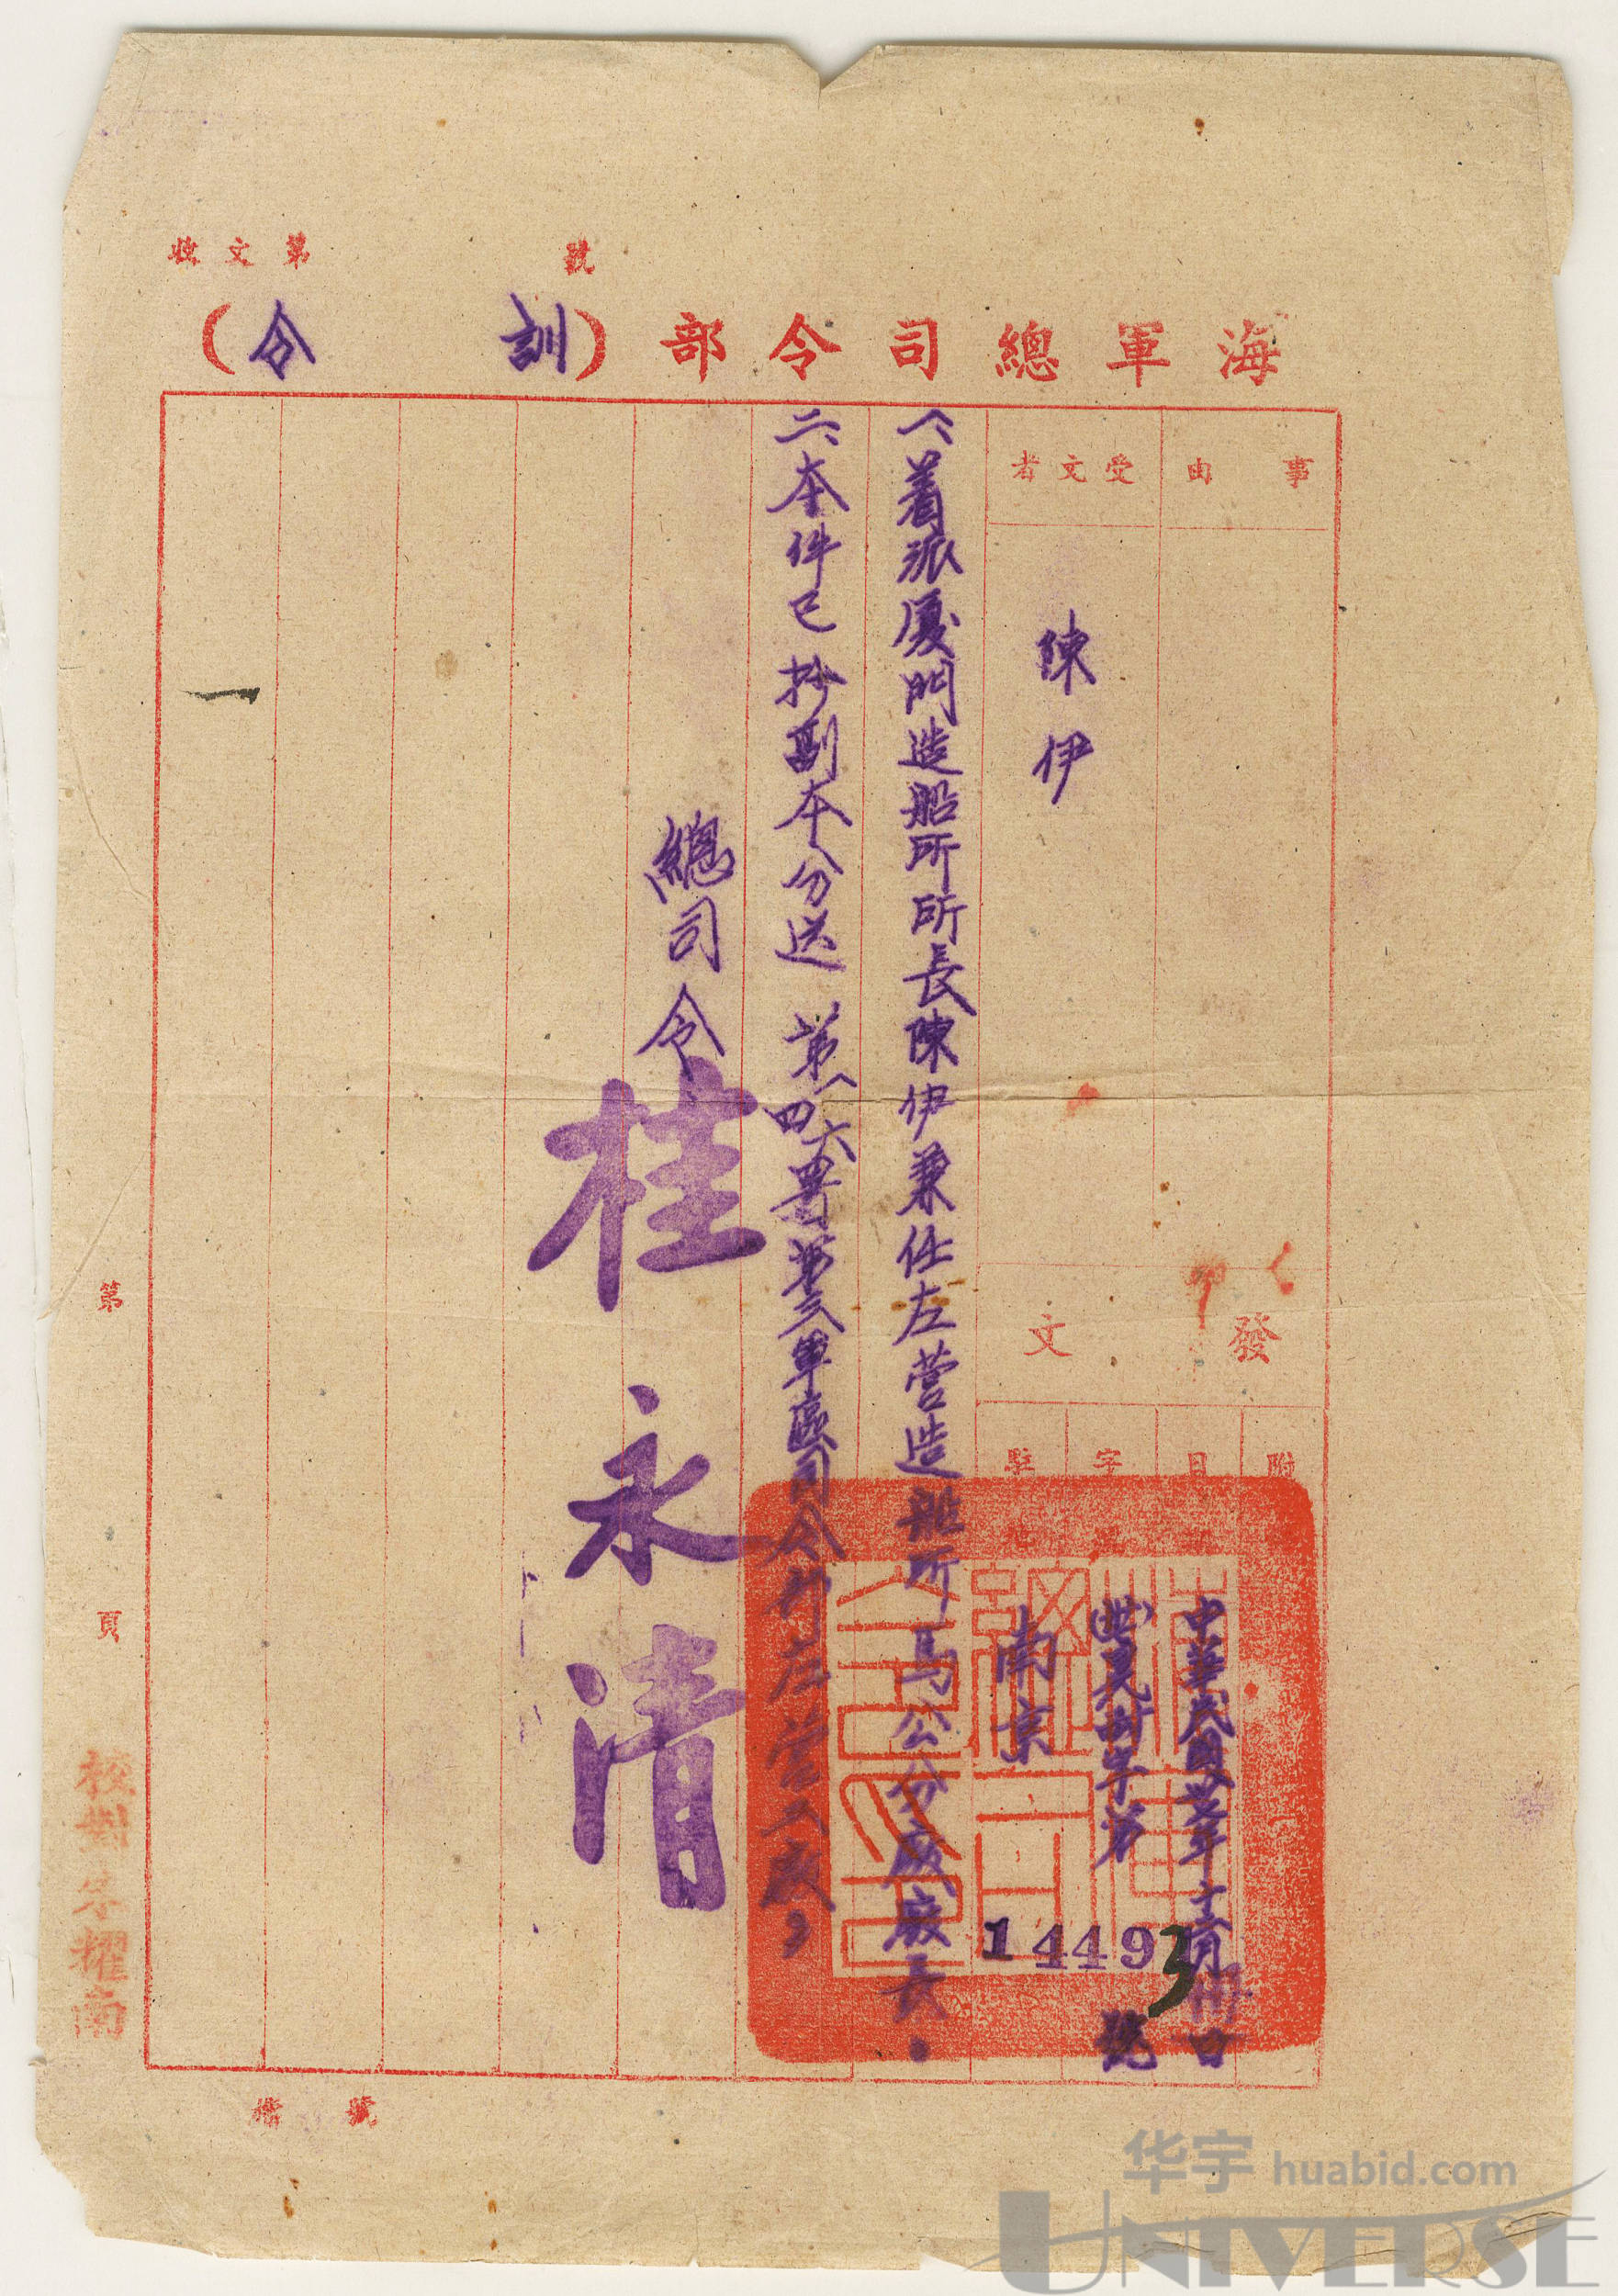 收文第 號
海軍總司令部(訓令)
事由
受文者
陳伊
發文
附
日
字
駐
中華民國卅七年十一月卅日
字第
14493
號
南京
一、着派厦門造船所所長陳伊兼任左營造船所馬公分廠廠長。
二、本件已抄副本分送第一四六署第三軍區司令部左營工廠,
總司令
桂永清
一
第 頁
校對 耀南
檔 號
华宇 huabid.com
UNIVERSE